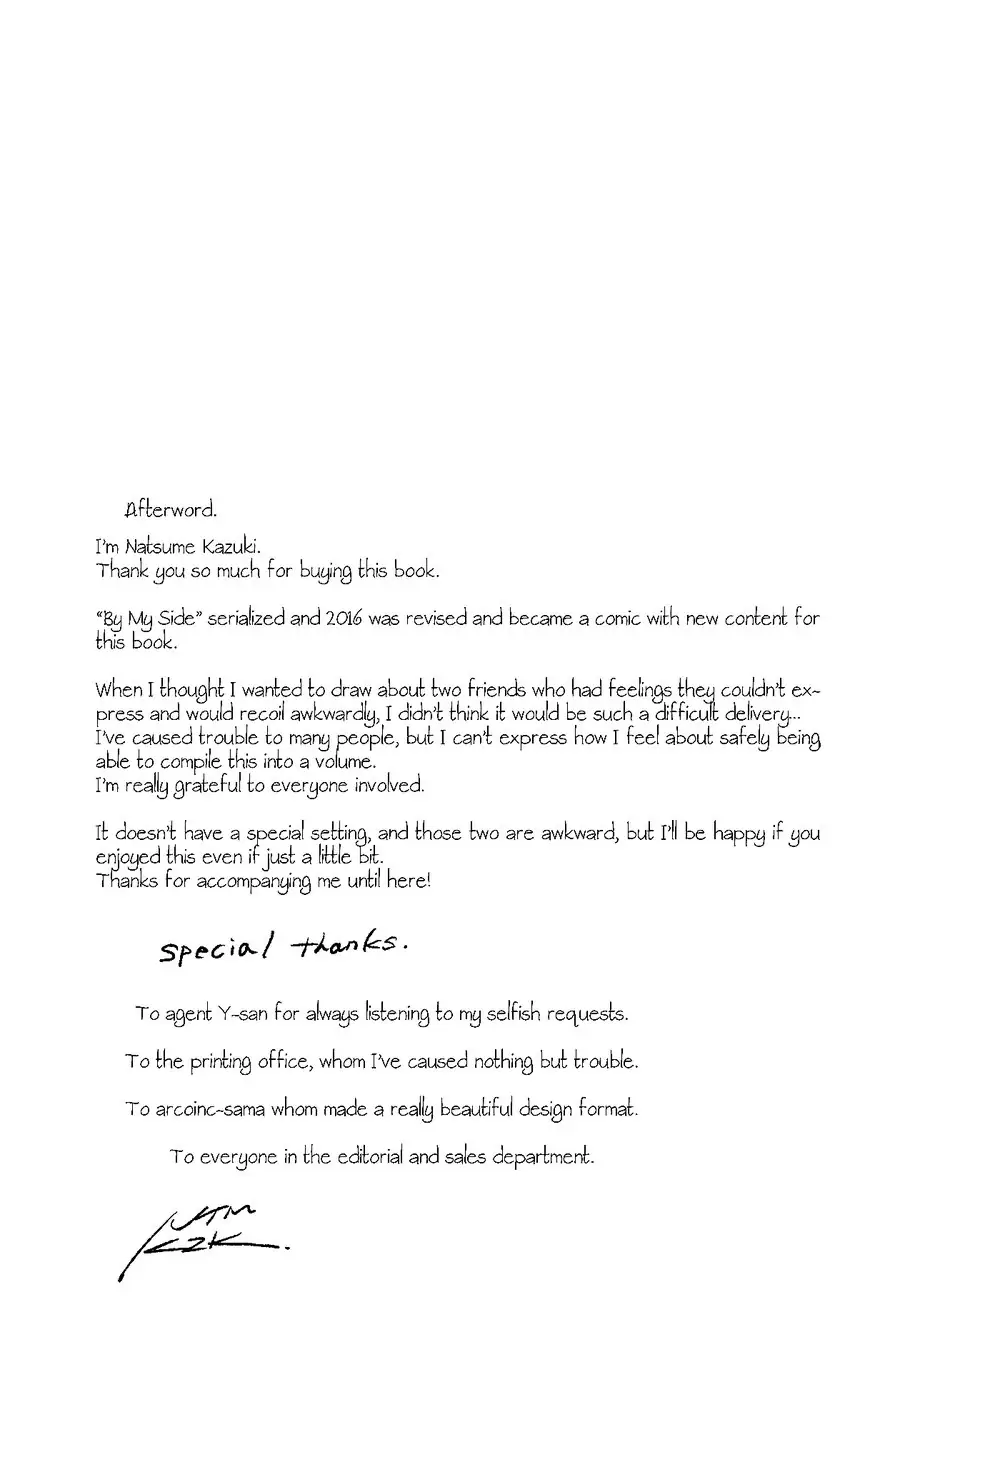 Afterword.
I'm Natsume Kazuki.
Thank you so much for buying this book.
"By My Side" serialized and 2016 was revised and became a comic with new content for
this book.
When I thought I wanted to draw about two friends who had feelings they couldn't ex-
press and would recoil awkwardly, I didn't think it would be such a difficult delivery...
I've caused trouble to many people, but I can't express how I feel about safely being
able to compile this into a volume.
I'm really grateful to everyone involved.
It doesn't have a special setting, and those two are awkward, but I'll be happy if you
enjoyed this even if just a little bit.
Thanks for accompanying me until here!
special thanks.
To agent Y-san for always listening to my selfish requests.
To the printing office, whom I've caused nothing but trouble.
To arcoinc-sama whom made a really beautiful design format.
To everyone in the editorial and sales department.
NTM
KZK.